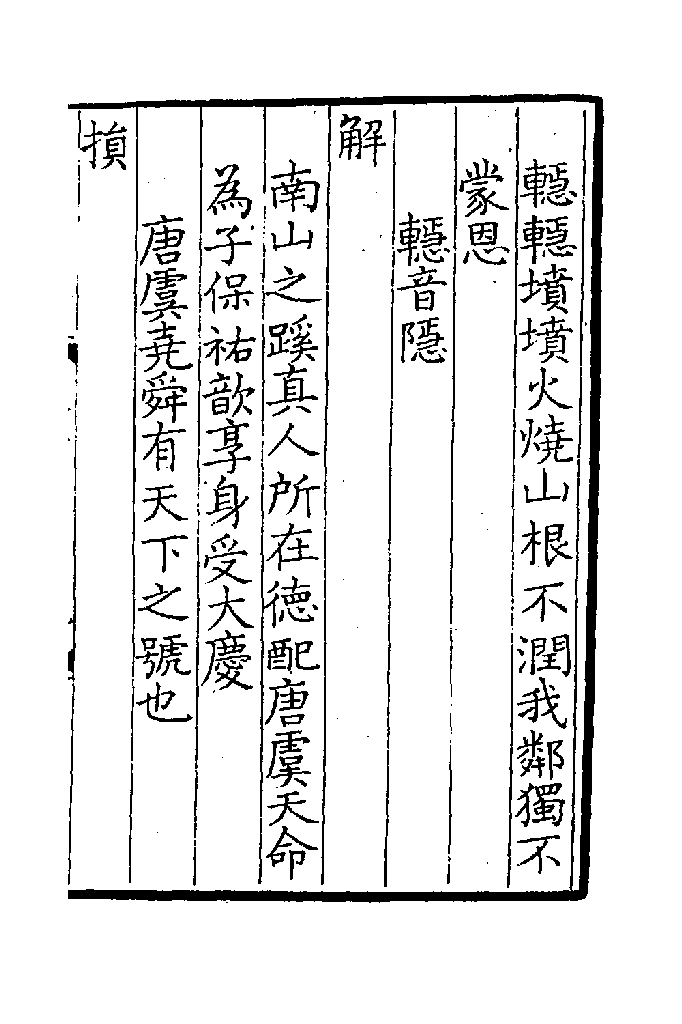 轀轀墳墳火燒山根不潤我鄰獨不
蒙恩
音隱
解
南山之蹊真人所在德配唐虞天命
為子保祐歆享身受大慶
唐虞堯舜有天下之號也
損